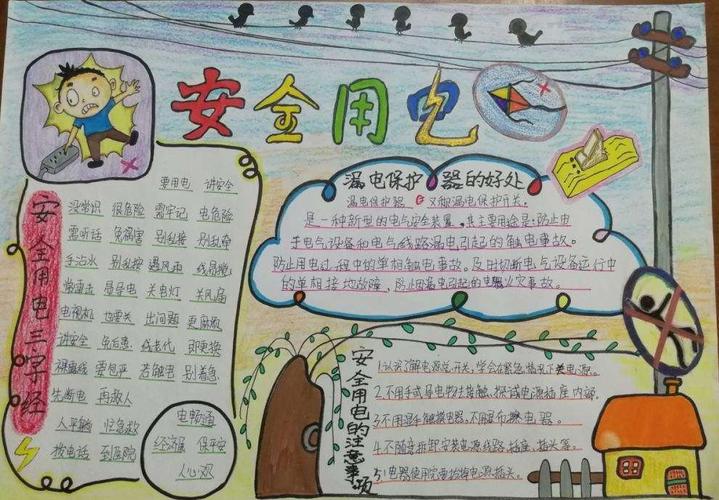 安全用电
安全用电三字经
要用电 讲安全
没常识 很危险 需牢记 电危险
需听话 免祸害 别乱接 别乱牵
手沾水 别乱接 遇风雨 线易揽
常雷击 易导电 关电灯 关风扇
电视机 也要关 出问题 更麻烦
讲安全 免后患 线老代 即更换
裸电线 要包平 若触电 别着急
先断电 再救人
人平躺 归急救
拨电话 到医院
电畅通
经济强 保平安
人心欢
漏电保护器的好处
漏电保护器 又称漏电保护开关.
是一种新型的电气安全装置,其主要用途是:防止由
于电气设备和电气线路漏电引起的触电事故。
防止用电过程中的单相触电事故。及时切断电气设备运行中
的单相接地故障,防止因漏电引起的电器火灾事故。
安全用电的注意事项
1.认识了解电源总开关,学会在紧急情况下关电源。
2.不用手或导电物去接触、探试电源插座内部.
3.不用湿手触摸电器,不用湿布擦电器。
4.不随意拆卸安装电源线路、插座、插头等.
5.电器使用完要拔掉电源插头。